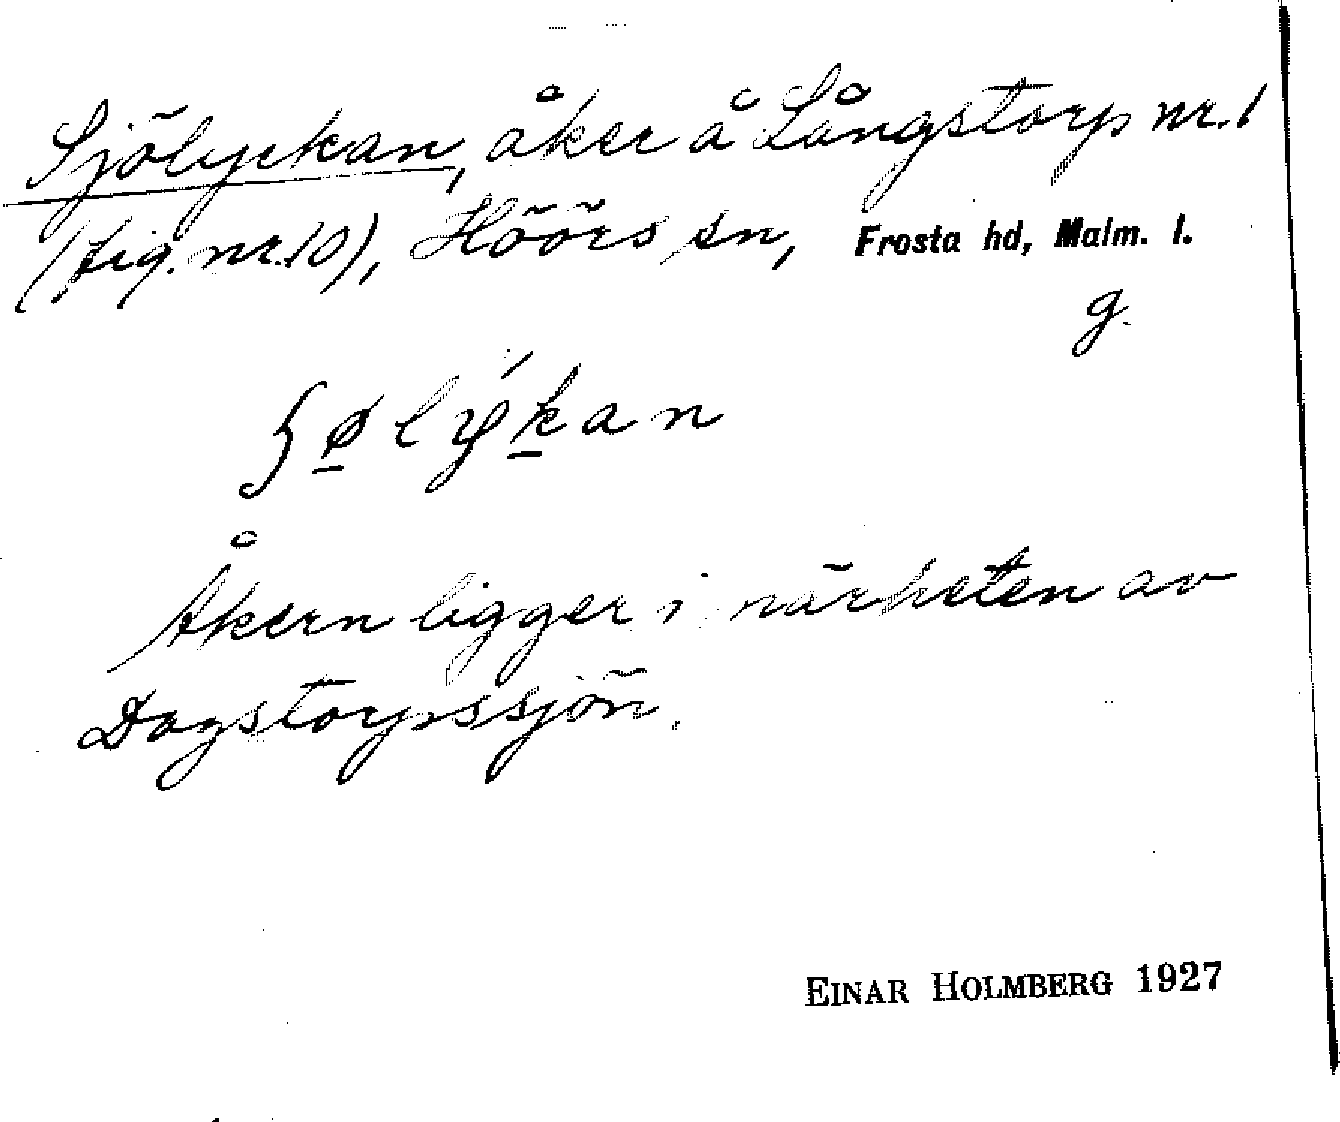 Sjölyckan, åker å Långstorp nr. 1
(fig. nr. 10), Höörs sn, Frosta hd, Malm. l.
g.
Åkern ligger i närheten av
Dagstorpssjön.
EINAR HOLMBERG 1927